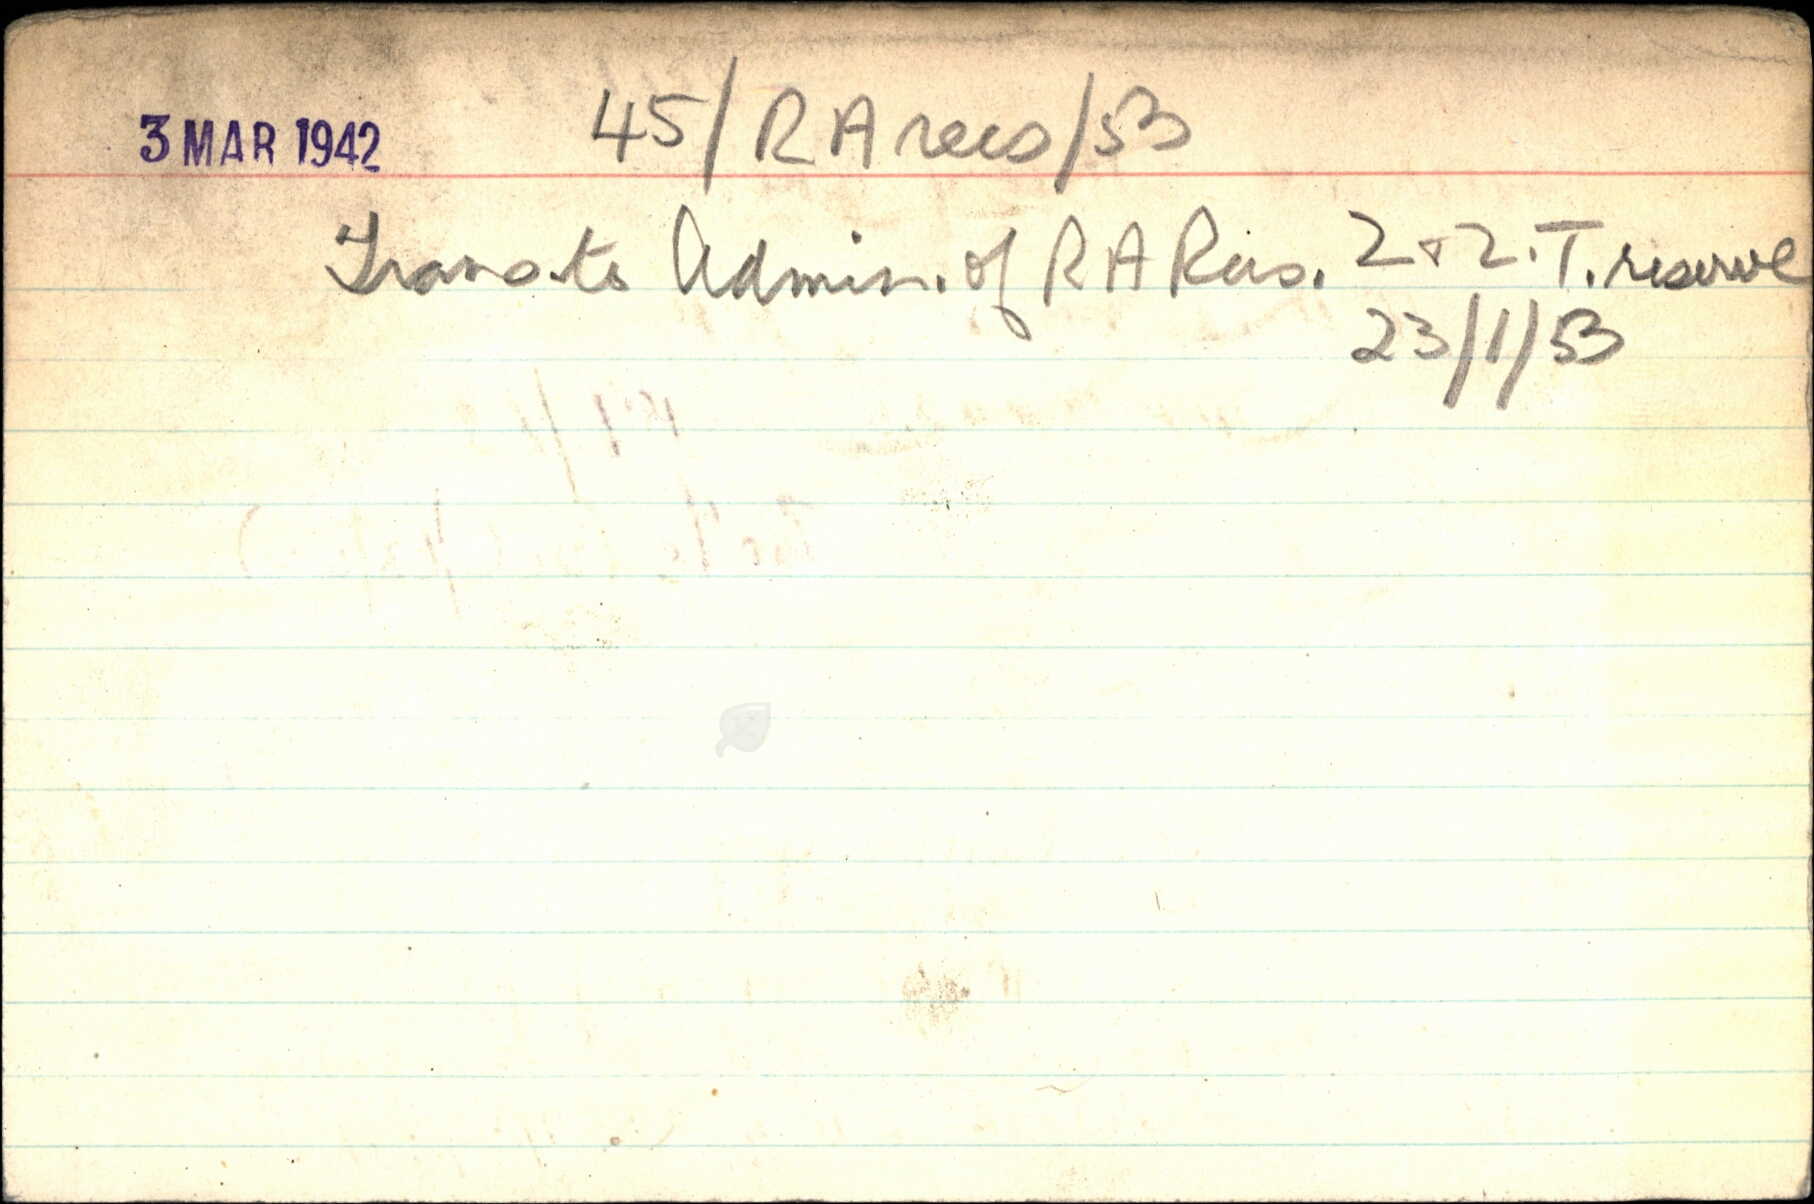 3 MAR 1942 45/RA recs/53
Trans. to Admin. of RA Recs. 2 + 2. T. reserve
23/1/53